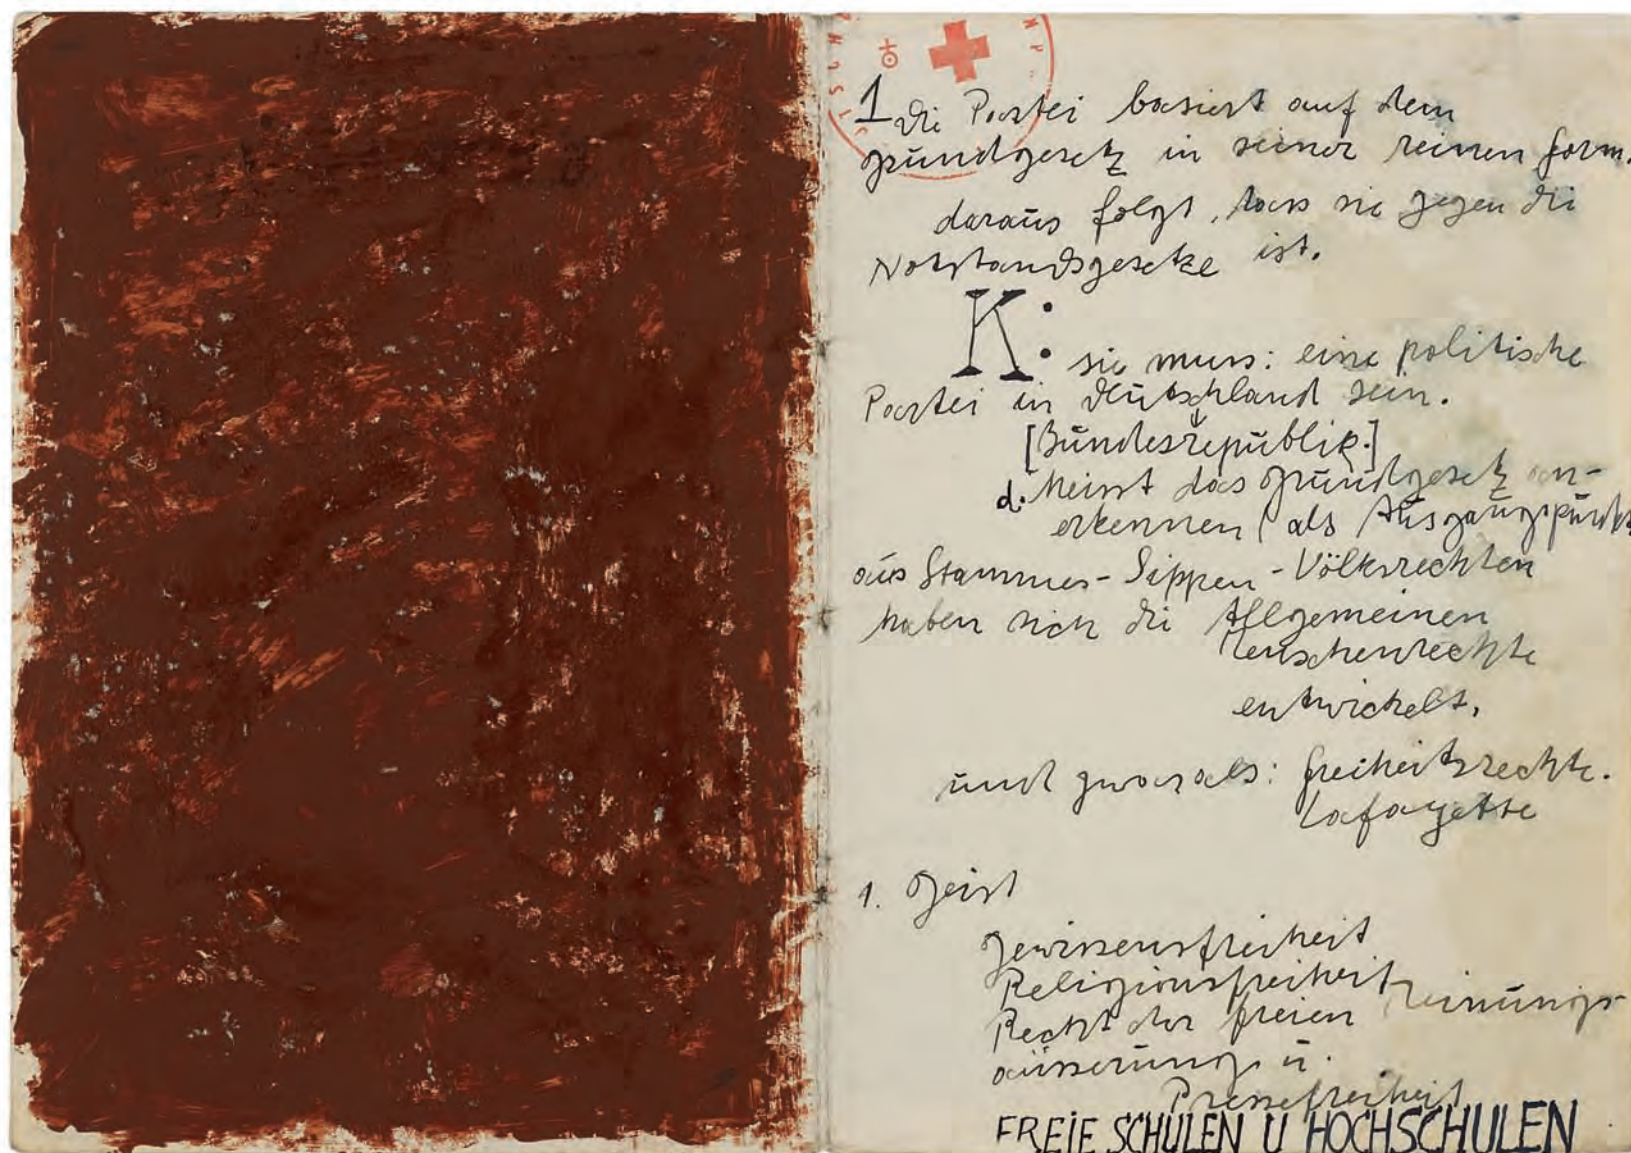 1 die Partei basiert auf dem
grundgesetz in seiner reinen form.
daraus folgt, dass sie gegen die
Notstandsgesetze ist.
K:
sie muss: eine politische
Partei in deutschland sein.
[Bundesrepublik.]
d. heisst das grundgesetz an-
erkennen (als Ausgangspunkt
aus Stammes-Sippen-Völkerrechten
haben sich die Allgemeinen
Menschenrechte
entwickelt,
und zwar als: freiheitsrechte.
Lafayette
1. geist
gewissensfreiheit
Religionsfreiheit
Recht der freien Meinungs-
äusserung u.
Pressefreiheit
FREIE SCHULEN U HOCHSCHULEN